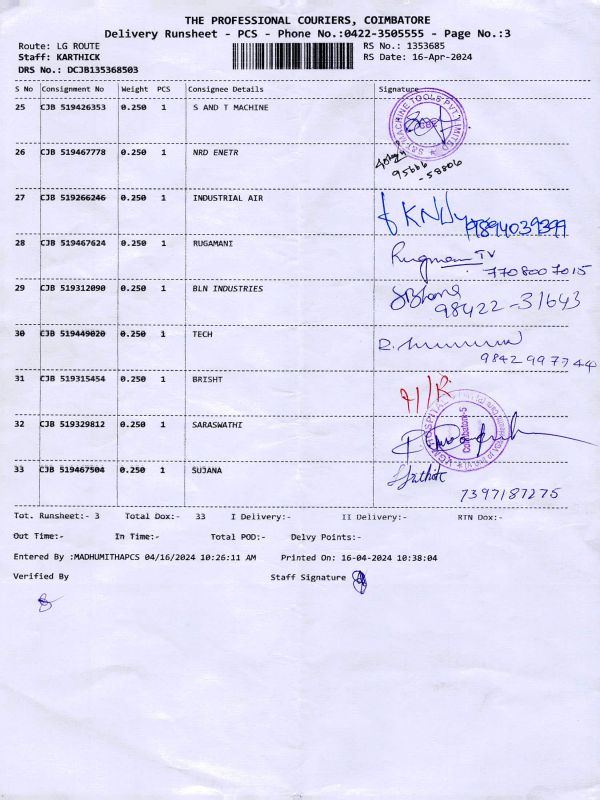 THE PROFESSIONAL COURIERS, COIMBATORE
Delivery Runsheet - PCS - Phone No.:0422-3505555 - Page No.:3
Route: LG ROUTE RS No.: 1353685
Staff: KARTHICK RS Date: 16-Apr-2024
DRS No.: DCJB135368503
S No Consignment No Weight PCS Consignee Details Signature
25 CJB 519426353 0.250 1 S AND T MACHINE
S&T MACHINE TOOLS PVT LIMITED
26 CJB 519467778 0.250 1 NRD ENETR
95666
-58806
27 CJB 519266246 0.250 1 INDUSTRIAL AIR
9894039399
28 CJB 519467624 0.250 1 RUGAMANI
7708007015
29 CJB 519312090 0.250 1 BLN INDUSTRIES
98422-31643
30 CJB 519449020 0.250 1 TECH
9842997744
31 CJB 519315454 0.250 1 BRISHT
32 CJB 519329812 0.250 1 SARASWATHI
VGM HOSPITAL
Coimbatore-5
33 CJB 519467504 0.250 1 SUJANA
7397187275
Tot. Runsheet:- 3 Total Dox:- 33 I Delivery:- II Delivery:- RTN Dox:-
Out Time:- In Time:- Total POD:- Delvy Points:-
Entered By :MADHUMITHAPCS 04/16/2024 10:26:11 AM Printed On: 16-04-2024 10:38:04
Verified By Staff Signature